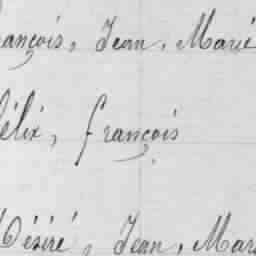 ançois, Jean, Marie
élix, françois
Désiré, Jean, Mar